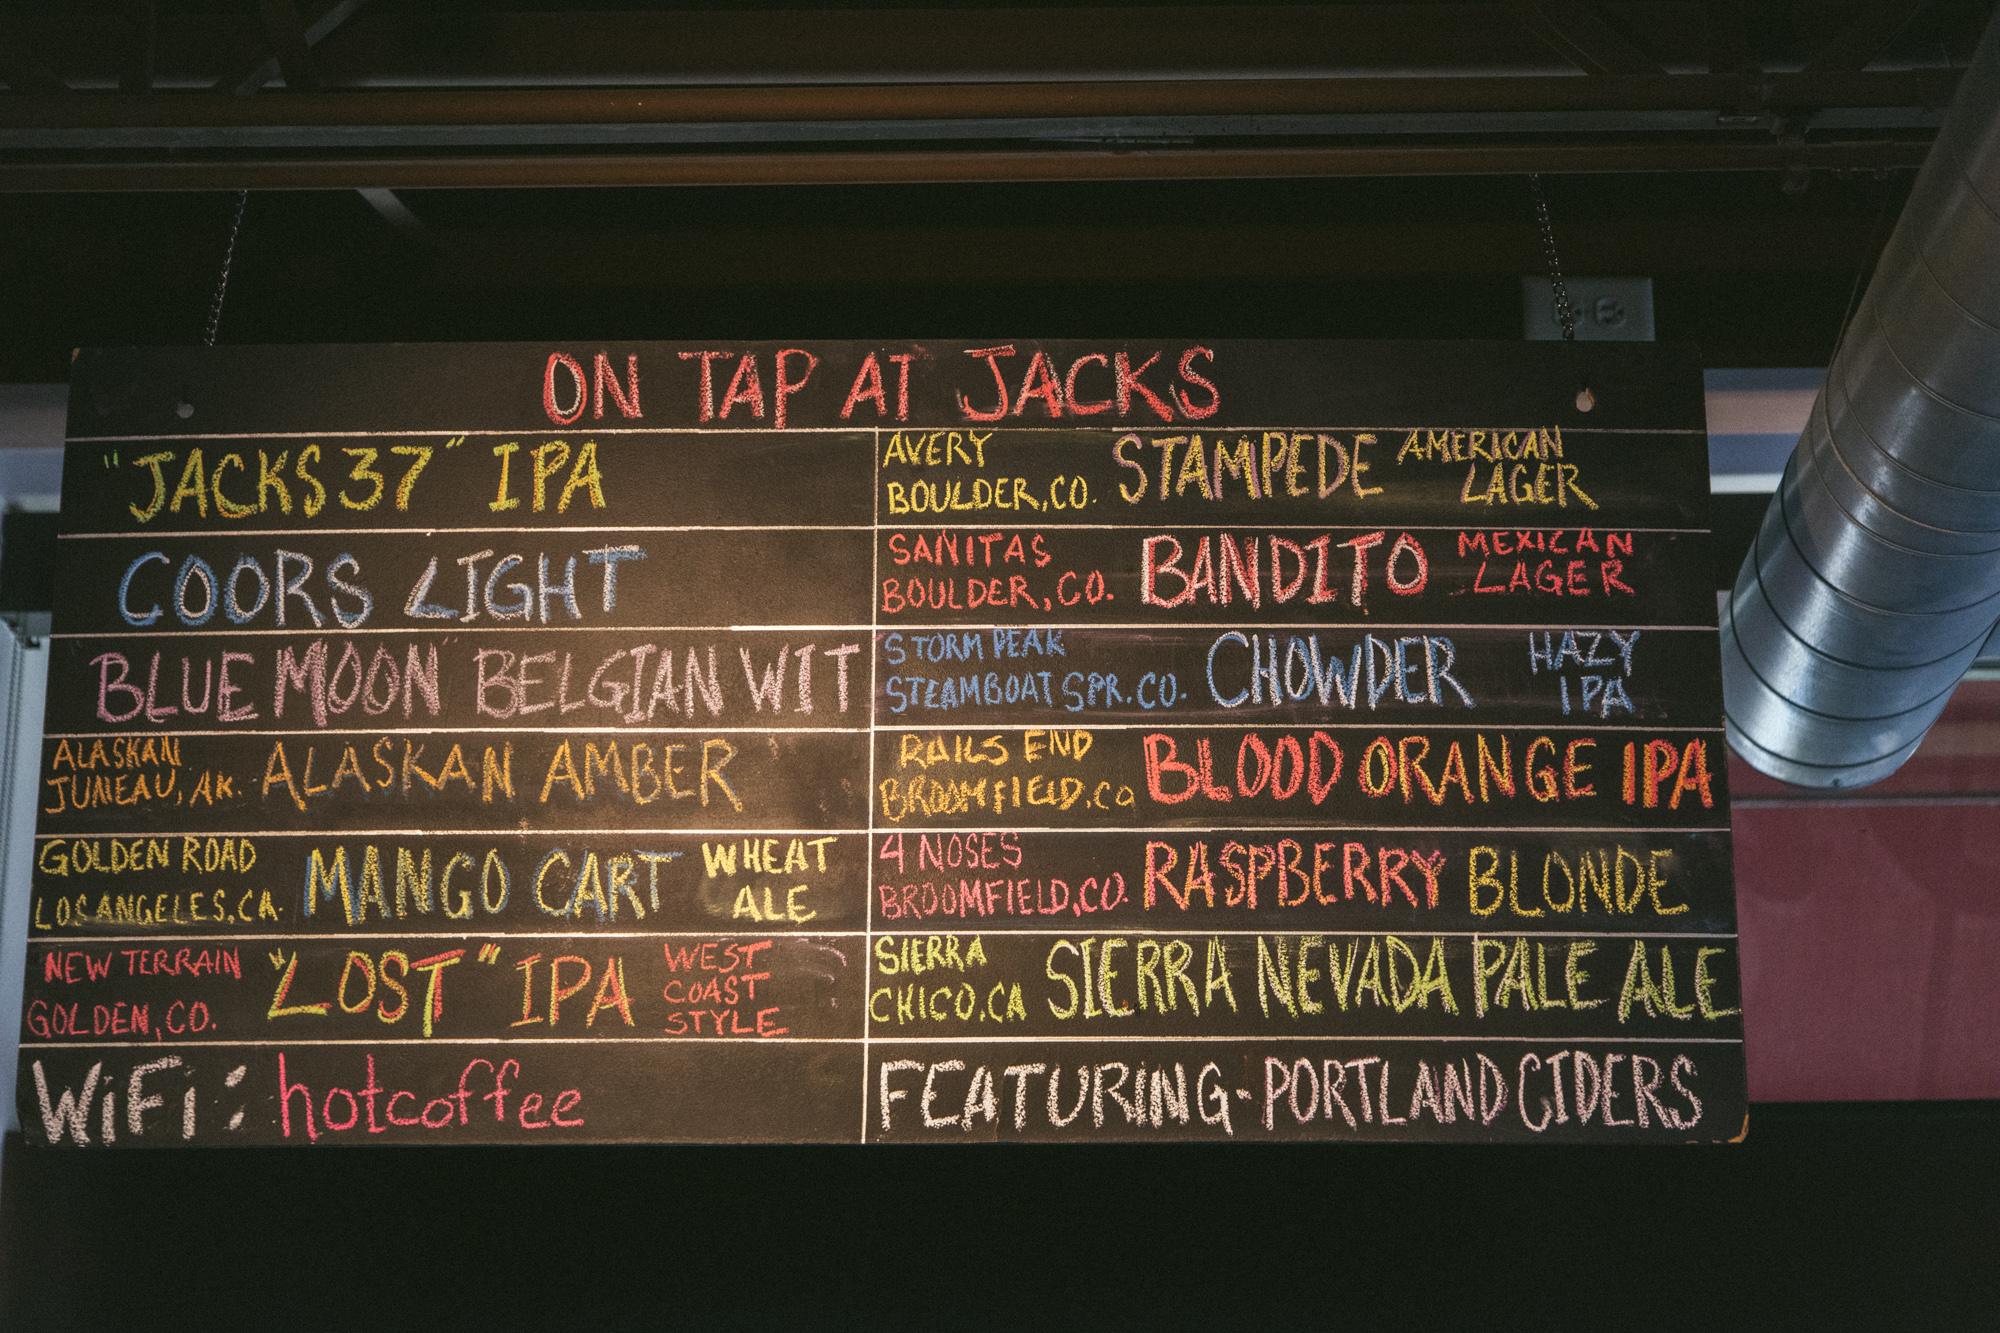 ON TAP AT JACKS
"JACKS 37" IPA
COORS LIGHT
BLUE MOON" BELGIAN WIT
ALASKAN
JUNEAU, AK.
ALASKAN AMBER
GOLDEN ROAD
LOS ANGELES, CA.
MANGO CART
WHEAT
ALE
NEW TERRAIN
GOLDEN, CO.
"LOST" IPA
WEST
COAST
STYLE
WiFi: hotcoffee
AVERY
BOULDER, CO.
STAMPEDE
AMERICAN
LAGER
SANITAS
BOULDER, CO.
BANDITO
MEXICAN
LAGER
STORM PEAK
STEAMBOAT SPR. CO.
CHOWDER
HAZY
IPA
RAILS END
BROOMFIELD, CO
BLOOD ORANGE IPA
4 NOSES
BROOMFIELD, CO.
RASPBERRY BLONDE
SIERRA
CHICO, CA
SIERRA NEVADA PALE ALE
FEATURING - PORTLAND CIDERS